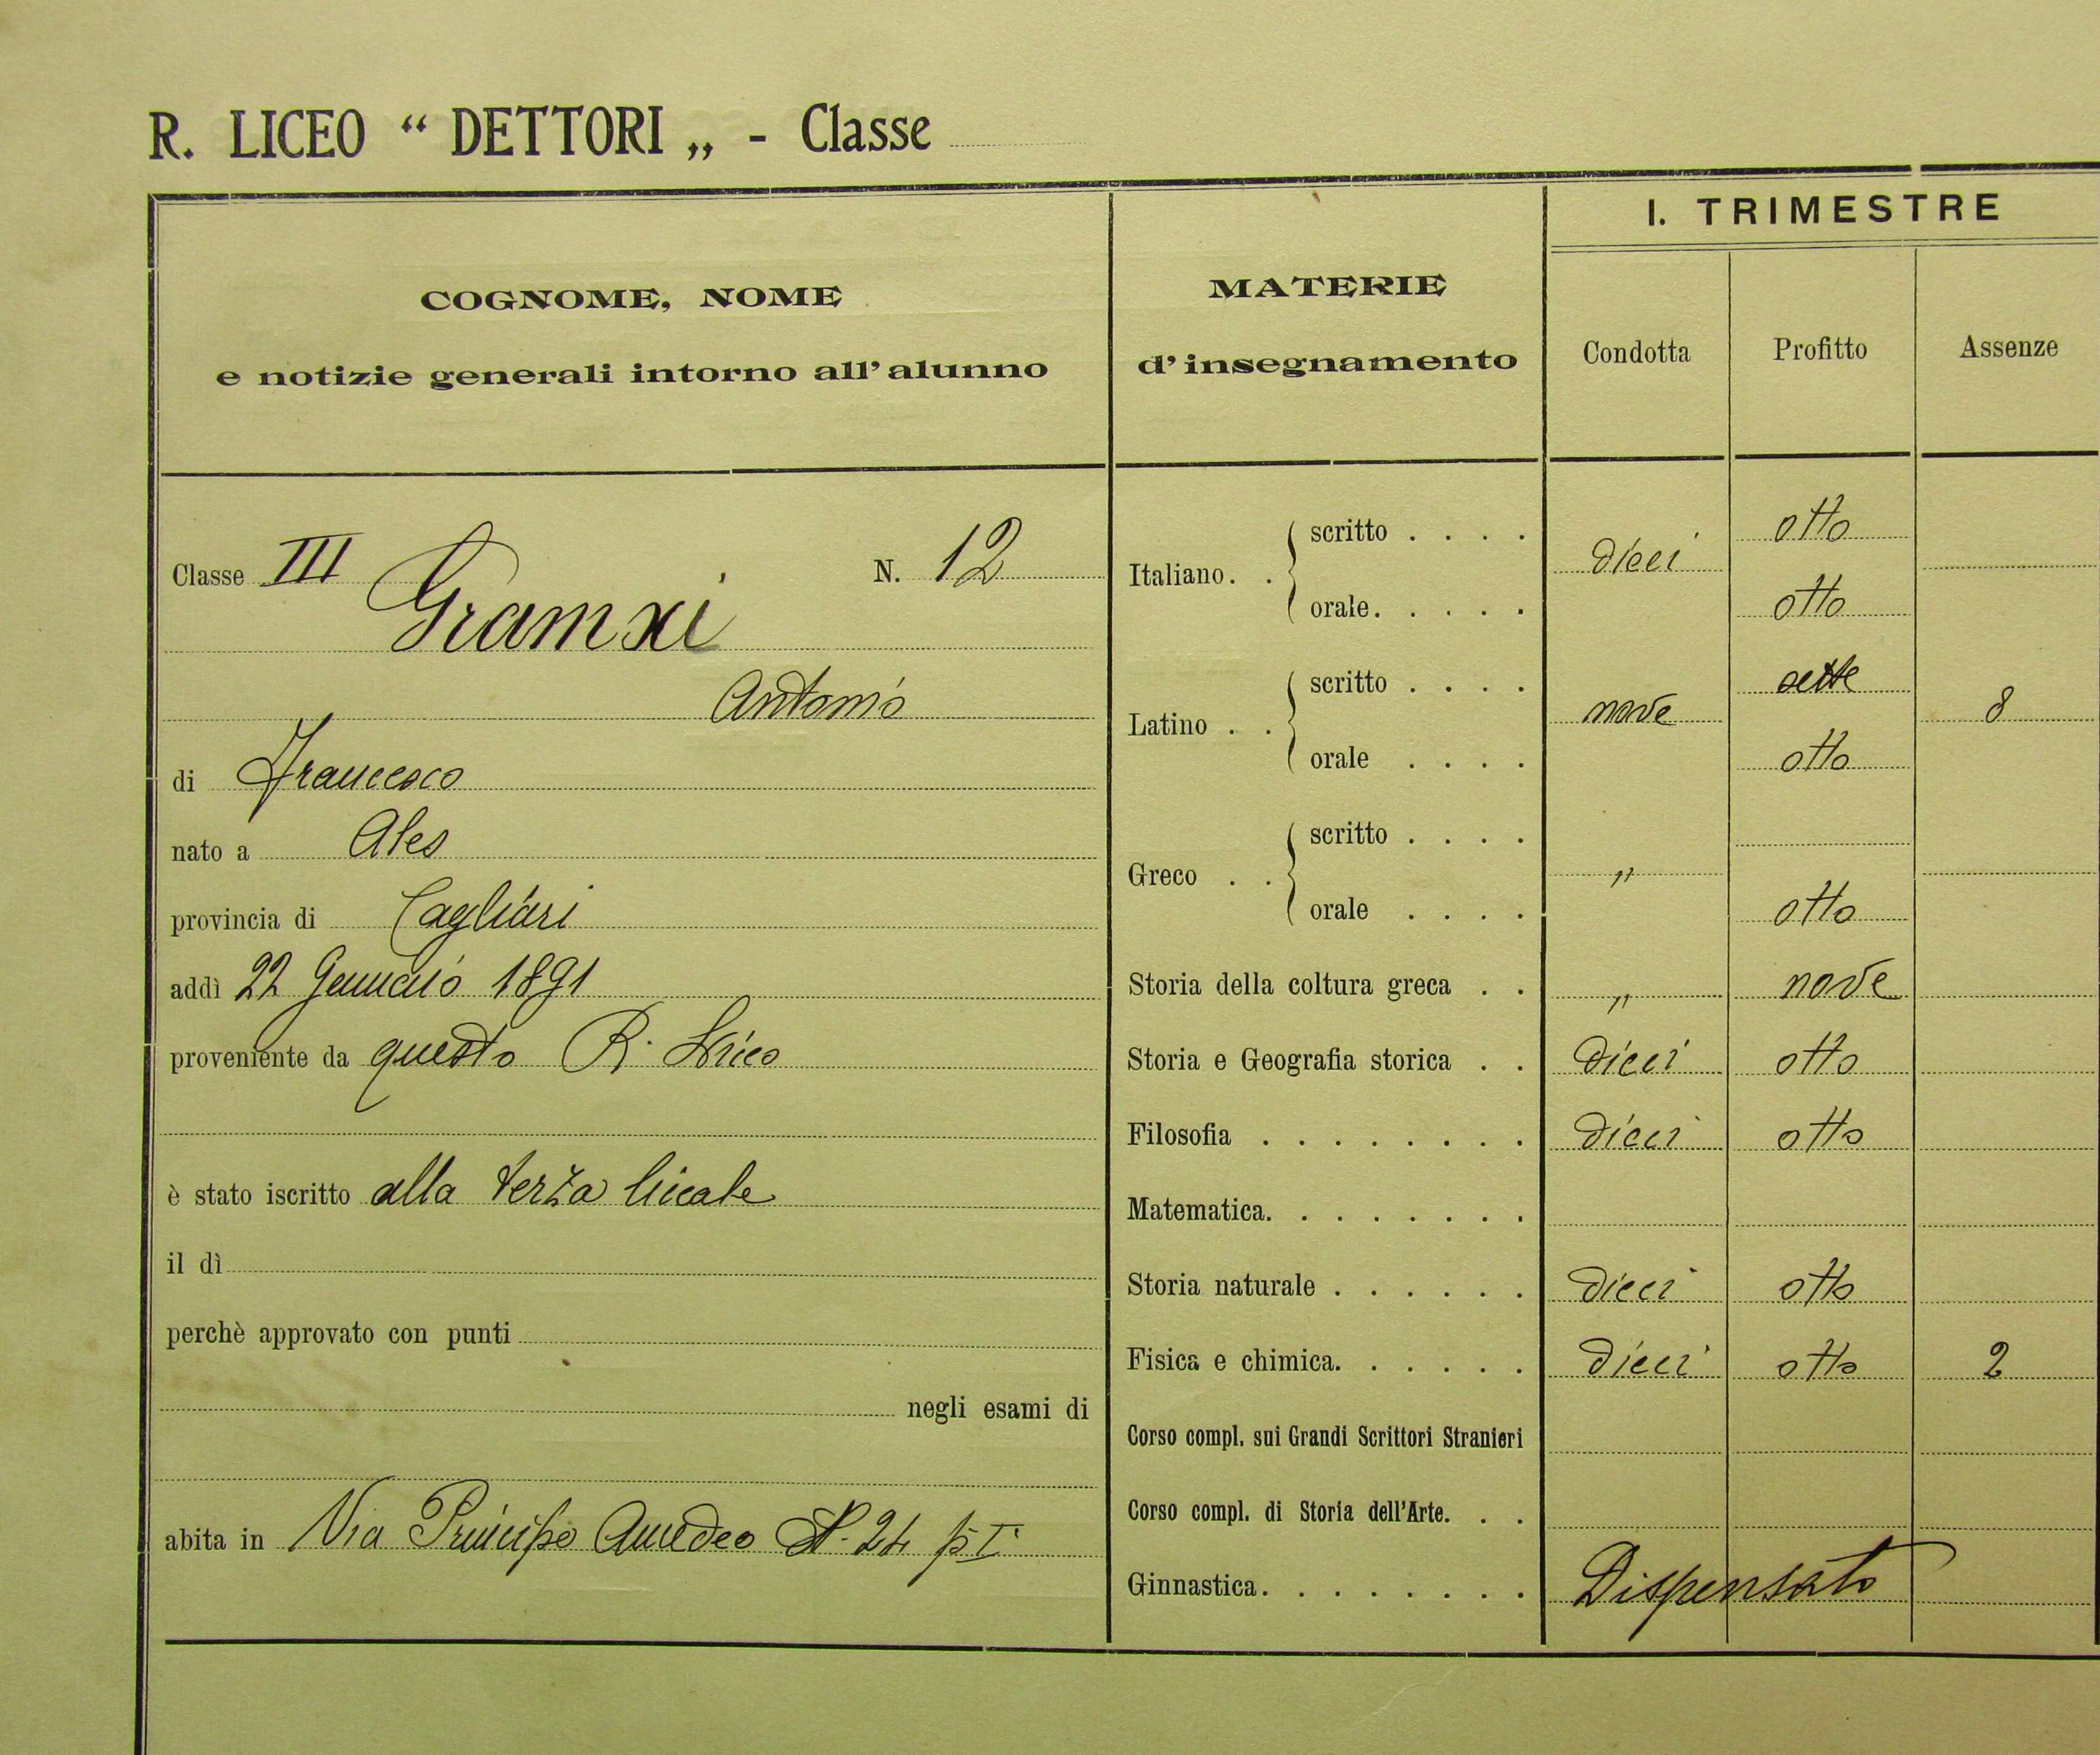 R. LICEO “ DETTORI „ - Classe
COGNOME, NOME
e notizie generali intorno all’alunno
MATERIE
d’insegnamento
I. TRIMESTRE
Condotta Profitto Assenze
Classe III N. 12
Gramsci
Antonio
di Francesco
nato a Ales
provincia di Cagliari
addì 22 Gennaio 1891
proveniente da questo R. Liceo
è stato iscritto alla terza liceale
il dì
perchè approvato con punti
negli esami di
abita in Via Principe Amedeo N. 24 p I
Italiano. . scritto . . . . dieci otto
orale. . . . . otto
Latino . . scritto . . . . nove sette 8
orale . . . . otto
Greco . . scritto . . . . „
orale . . . . otto
Storia della coltura greca . . „ nove
Storia e Geografia storica . . Dieci otto
Filosofia . . . . . . . . Dieci otto
Matematica. . . . . . . .
Storia naturale . . . . . . Dieci otto
Fisica e chimica. . . . . . Dieci otto 2
Corso compl. sui Grandi Scrittori Stranieri
Corso compl. di Storia dell’Arte. . .
Ginnastica. . . . . . . . Dispensato